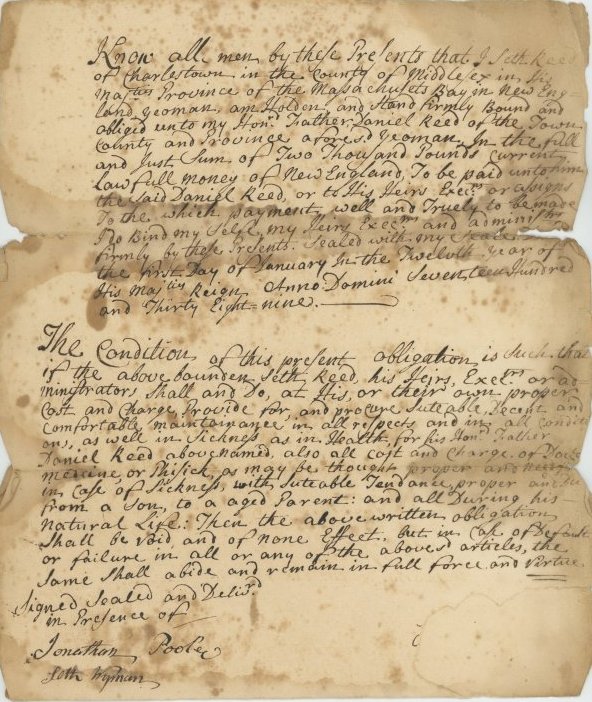 Know all men by these Presents that I Seth Reed
of Charlestown in the County of Middlesex in His
Maj:ties Province of the Massachusets Bay in New Eng-
land, yeoman, am Holden and Stand firmly Bound and
obliged unto my Hon:d Father Daniel Reed of the Town
County and Province afores:d yeoman. In the full
and Just Sum of Two Thousand Pounds current
Lawfull money of New England, To be paid unto him
the said Daniel Reed, or to His Heirs Exec:rs or assigns
To the which payment, well and Truely to be made
I do Bind my Self, my Heirs Exec:rs and administ:rs
firmly by these Presents. Sealed with my Seale
the first Day of January In the Twelvth year of
His Maj:ties Reign Anno: Domini Seventeen Hundred
and Thirty Eight-nine.
The Condition of this present obligation is Such, that
if the above bounden Seth Reed, his Heirs, Exec:rs or ad-
ministrators Shall and Do, at His, or their own proper
Cost and Charge, Provide for, and procure Suteable, Decent and
Comfortable maintainance in all respects and in all Conditi
ons, as well in Sickness as in Health, for his Hon:d Father
Daniel Reed above named, also all cost and Charge of Doct:rs
medicine, or Phisick, as may be thought proper and
in Case of Sickness, with Suteable Tendance, proper and Due
from a Son, to a aged Parent: and all During his
Natural Life: Then the above written obligation
Shall be Void and of none Effect. but in Case of Default
or failure in all or any of the aboves:d articles, the
same Shall abide and remain in full force and Virtue.
Signed Sealed and Deliv:rd
in Presence of
Jonathan Pooley
Seth Wyman